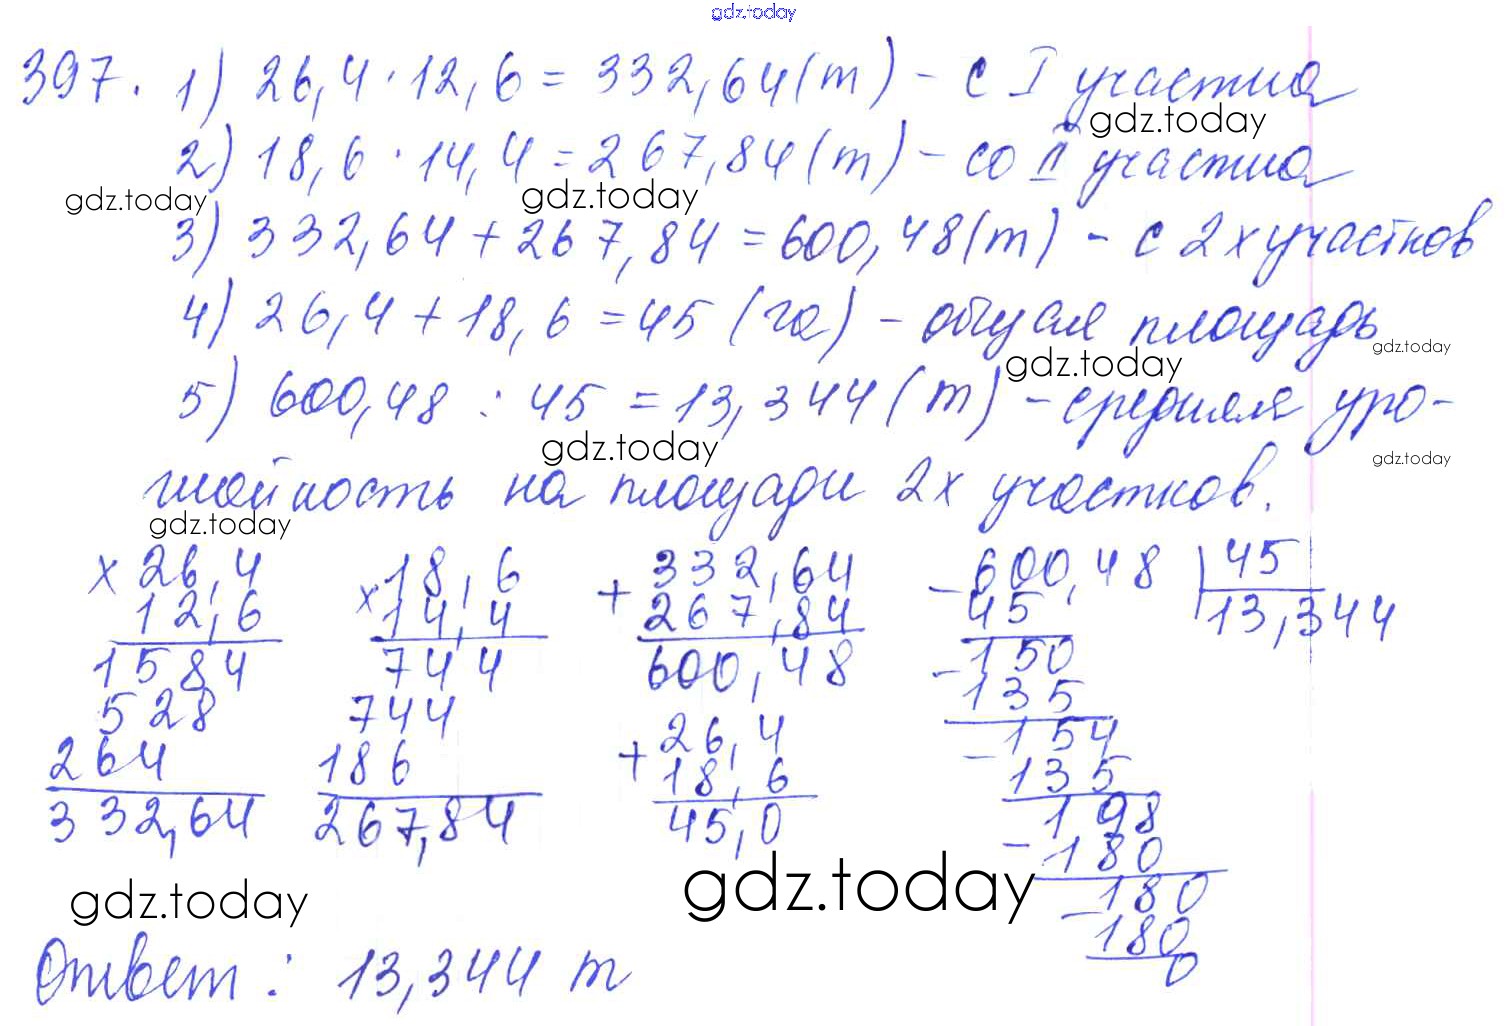 gdz.today
397. 1) 26,4 · 12,6 = 332,64 (т) - с I участка
gdz.today
2) 18,6 · 14,4 = 267,84 (т) - со II участка
gdz.today gdz.today
3) 332,64 + 267,84 = 600,48 (т) - с 2х участков
4) 26,4 + 18,6 = 45 (га) - общая площадь
gdz.today gdz.today
5) 600,48 : 45 = 13,344 (т) - средняя уро-
gdz.today gdz.today
жайность на площади 2х участков.
gdz.today
× 26,4 × 18,6 + 332,64 - 600,48 | 45
12,6 14,4 267,84 45 13,344
1584 744 600,48 - 150
528 744 135
264 186 + 26,4 - 154
332,64 267,84 18,6 135
45,0 198
- 180
180
- 180
0
gdz.today gdz.today
Ответ: 13,344 т